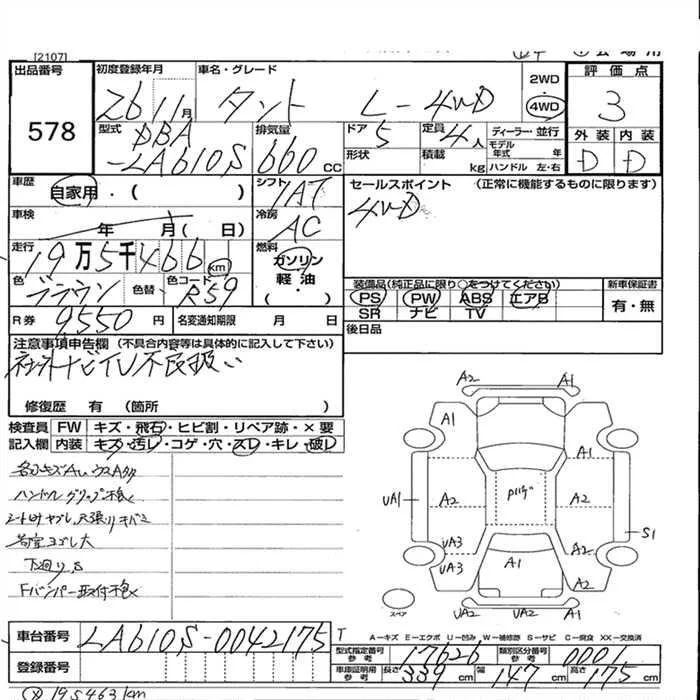 [2107]
出品番号
578
初度登録年月
26 11月
車名・グレード
タント L-4WD
2WD
4WD
評価点
3
外装 内装
D D
型式
DBA
-LA610S
排気量
660 CC
ドア
5
定員
4人
ディーラー・並行
モデル年式 年
形状
積載 kg
ハンドル 左・右
車歴
自家用・( )
シフト
IAT
セールスポイント (正常に機能するものに限ります)
4WD
車検
年 月( 日)
冷房
AC
走行
19万5千466 km
燃料
ガソリン
軽油
( ・ )
色
ブラウン
色替
色コード
R59
装備品(純正品に限り○をつけてください)
新車保証書
PS PW ABS エアB
SR ナビ TV
有・無
R券
9550円
名変通知期限 月 日
後日品
注意事項申告欄 (不具合内容等は具体的に記入して下さい)
ナビTV不良扱い
修復歴 有 (箇所
検査員
記入欄
FW キズ・飛石・ヒビ割・リペア跡・×要
内装 キズ・汚レ・コゲ・穴・スレ・キレ・破レ
ハンドルグリップ不良
シート
天張り
下廻りS
Fバンパー取付不良
A2 A1
A1 A1
UA1 A2 A2 S1
UA3 A2
UA3 A1 A2
UA2 UA2 A2
スペア
車台番号
LA610S-0042175
登録番号
T
A-キズ E-エクボ U-凹み W-補修跡 S-サビ C-腐食 XX-交換済
型式指定番号
参考
17626
類別区分番号
参考
0001
車庫証明用
参考
長さ 339 cm 幅 147 cm 高さ 175 cm
195463km